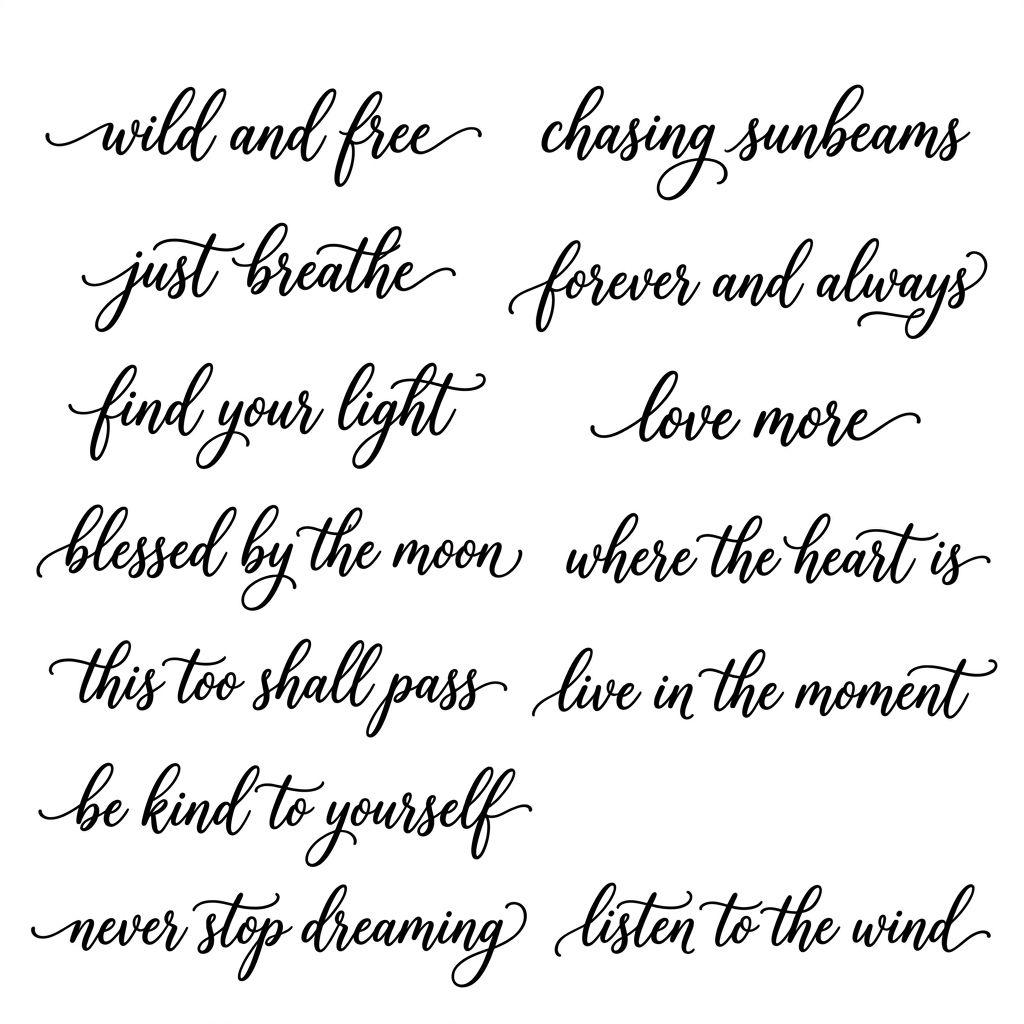 wild and free
chasing sunbeams
just breathe
forever and always
find your light
love more
blessed by the moon
where the heart is
this too shall pass
live in the moment
be kind to yourself
never stop dreaming
listen to the wind